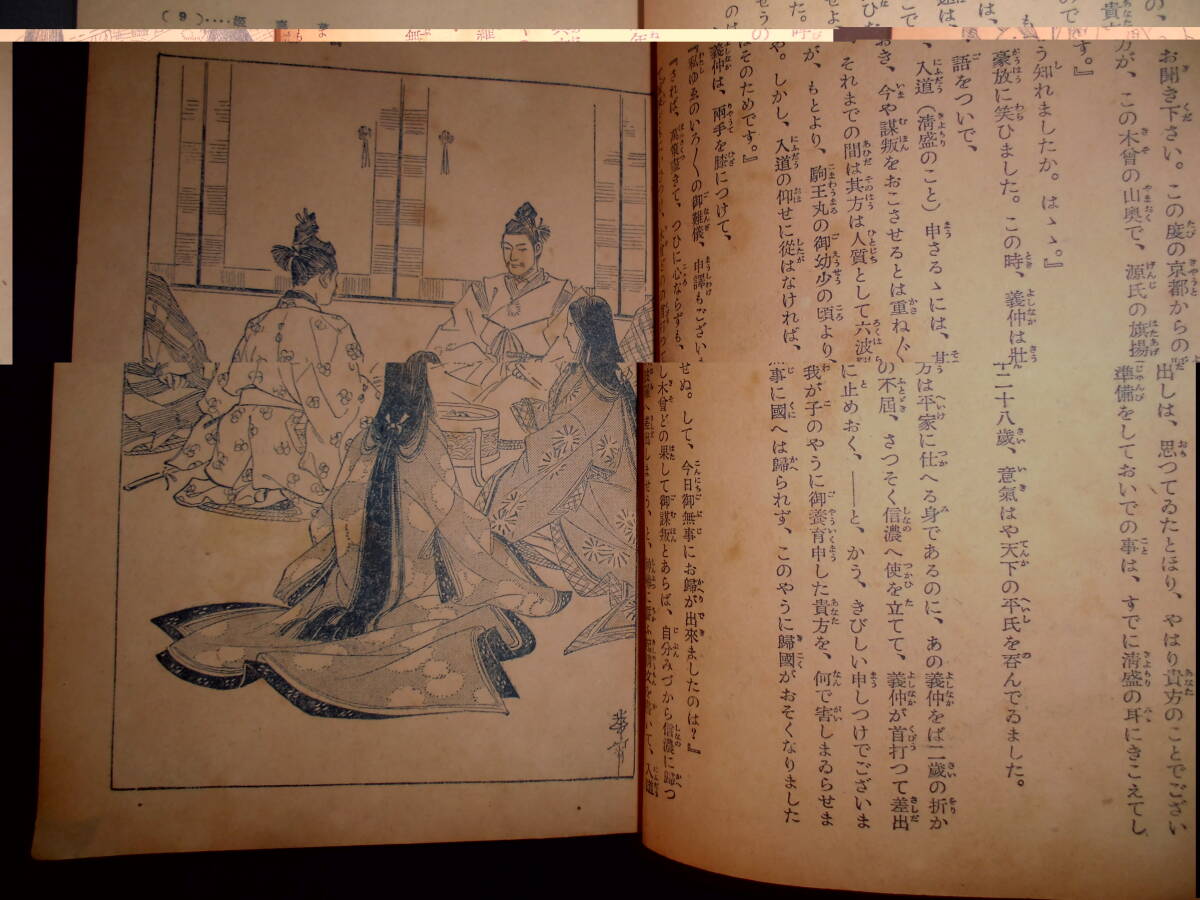 (9)‥‥
お聞き下さい。この度の京都からの出しは、思つてゐたとほり、やはり貴方のことでござい
貴方が、この木曾の山奥で、源氏の旗揚準備をしておいでの事は、すでに清盛の耳にきこえてし
のです。』
もう知れましたか。はゝゝ。』
は、豪放に笑ひました。この時、義仲は壯二十八歳、意氣はや天下の平氏を呑んでゐました。
は、語をついで、
こで、入道(清盛のこと)申さるゝには、其方は平家に仕へる身であるのに、あの義仲をば二歳の折か
ひなおき、今や謀叛をおこさせるとは重ね〲の不屆、さつそく信濃へ使を立てて、義仲が首打つて差出
せよ、それまでの間は其方は人質として六波羅に止めおく、――と、かう、きびしい申しつけでございま
た。が、もとより、駒王丸の御幼少の頃より、我が子のやうに御養育申した貴方を、何で害しまゐらせま
せうや。しかし、入道の仰せに從はなければ、事に國へは歸られず、このやうに歸國がおそくなりました
のはそのためです。』
義仲は、兩手を膝につけて、
『私ゆゑのいろ〳〵の御難儀、申譯もございませぬ。して、今日御無事にお歸が出來ましたのは?』
『されば、萬策盡きて、つひに心ならずも、し木曾どの果して御謀叛とあらば、自分みづから信濃に歸つ